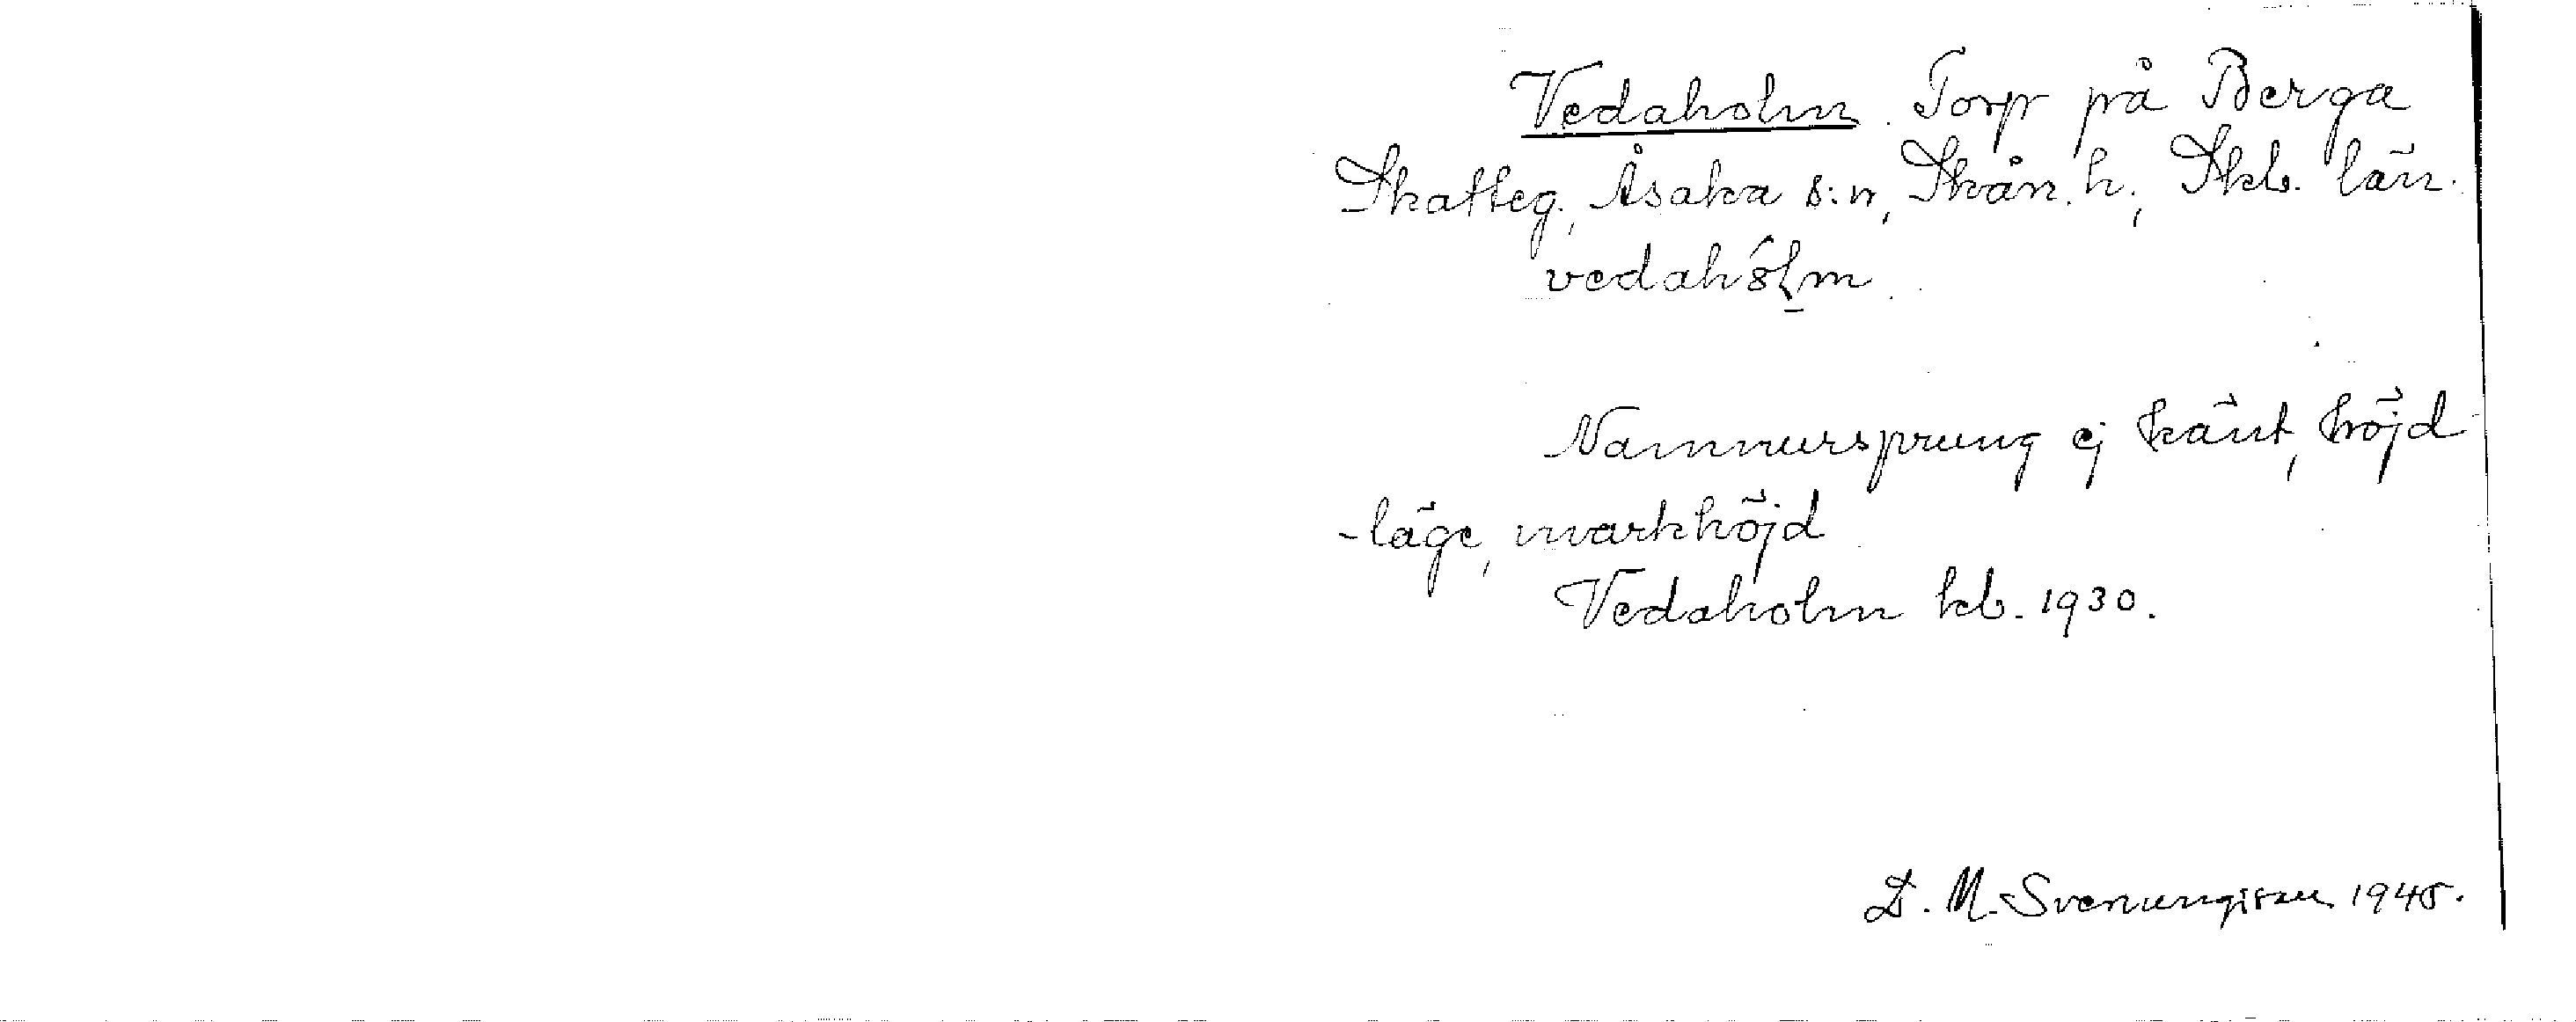 Vedaholm. Torp på Berga
Skatteg., Åsaka s:n, Skån. h., Skb. län.
vedahólm
Namnursprung ej känt, höjd-
-läge, markhöjd
Vedaholm kb. 1930.
D. M. Svenungsson 1945.